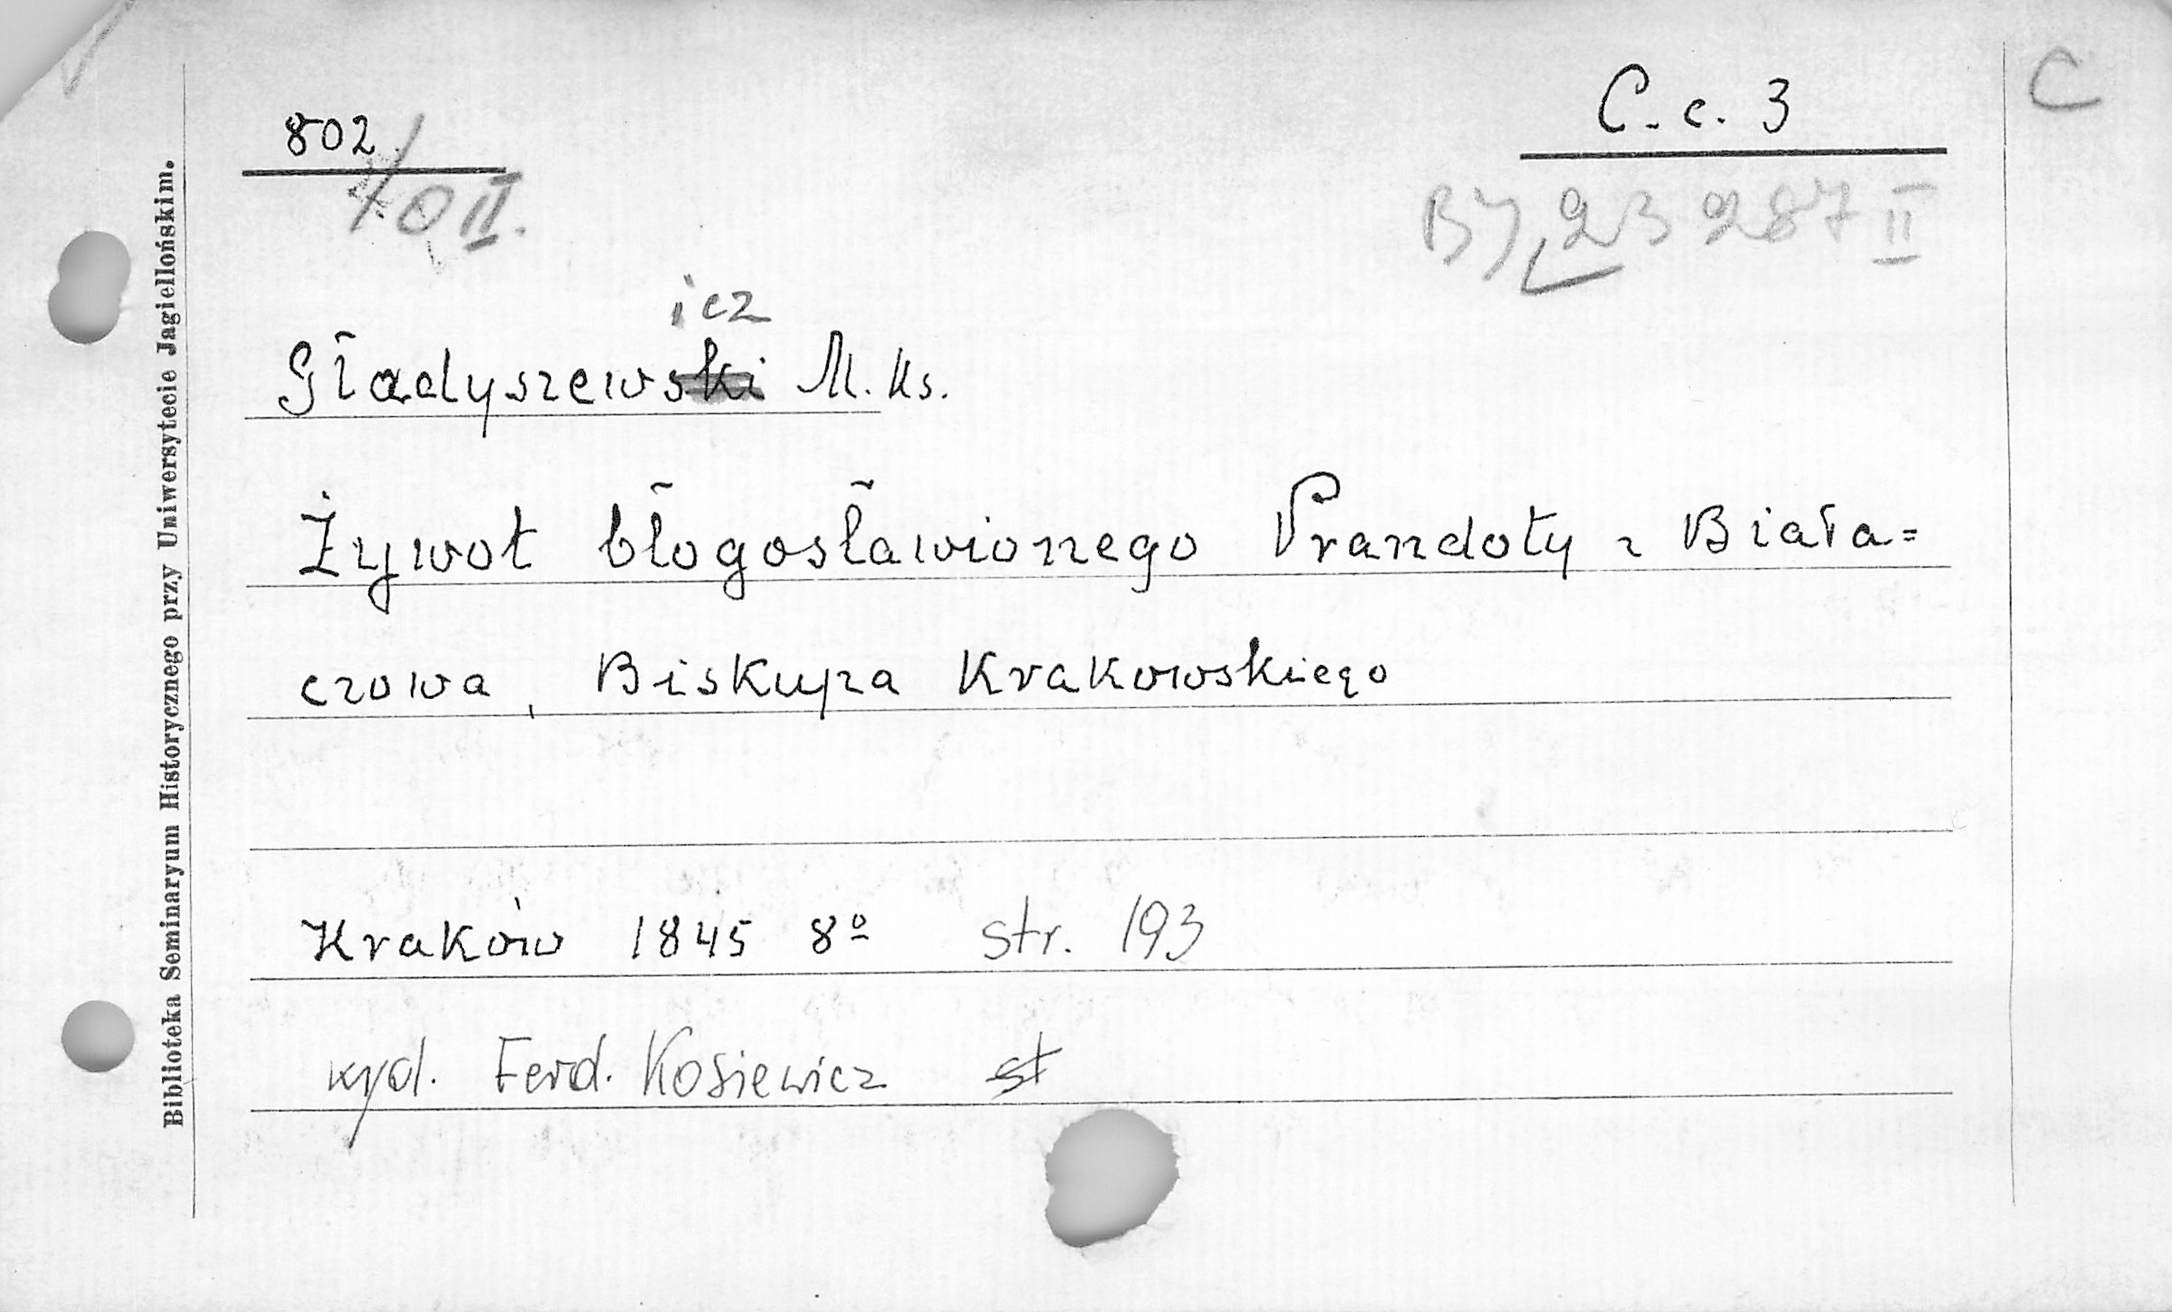 C
802
C. c. 3
II.
23 287 II
icz
Gładyszewski M. Ks.
Żywot błogosławionego Prandoty z Biała=
czowa, Biskupa Krakowskiego
Kraków 1845 8º str. 193
wyd. Ferd. Kosiewicz st
Biblioteka Seminaryum Historycznego przy Uniwersytecie Jagiellońskim.